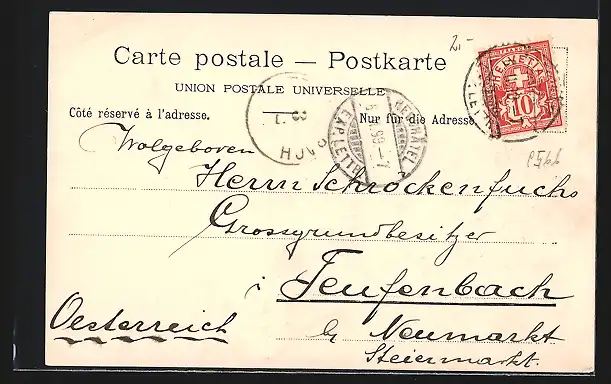 2.-
Carte postale — Postkarte
UNION POSTALE UNIVERSELLE
Côté réservé à l'adresse. Nur für die Adresse
FRANCO
HELVETIA
10
NEUCHÂTEL
EXP. LETTR.
Wolgeboren
Herrn Schröckenfuchs
Grossgrundbesitzer
i Teufenbach
Oesterreich
by Neumarkt
Steiermarkt.